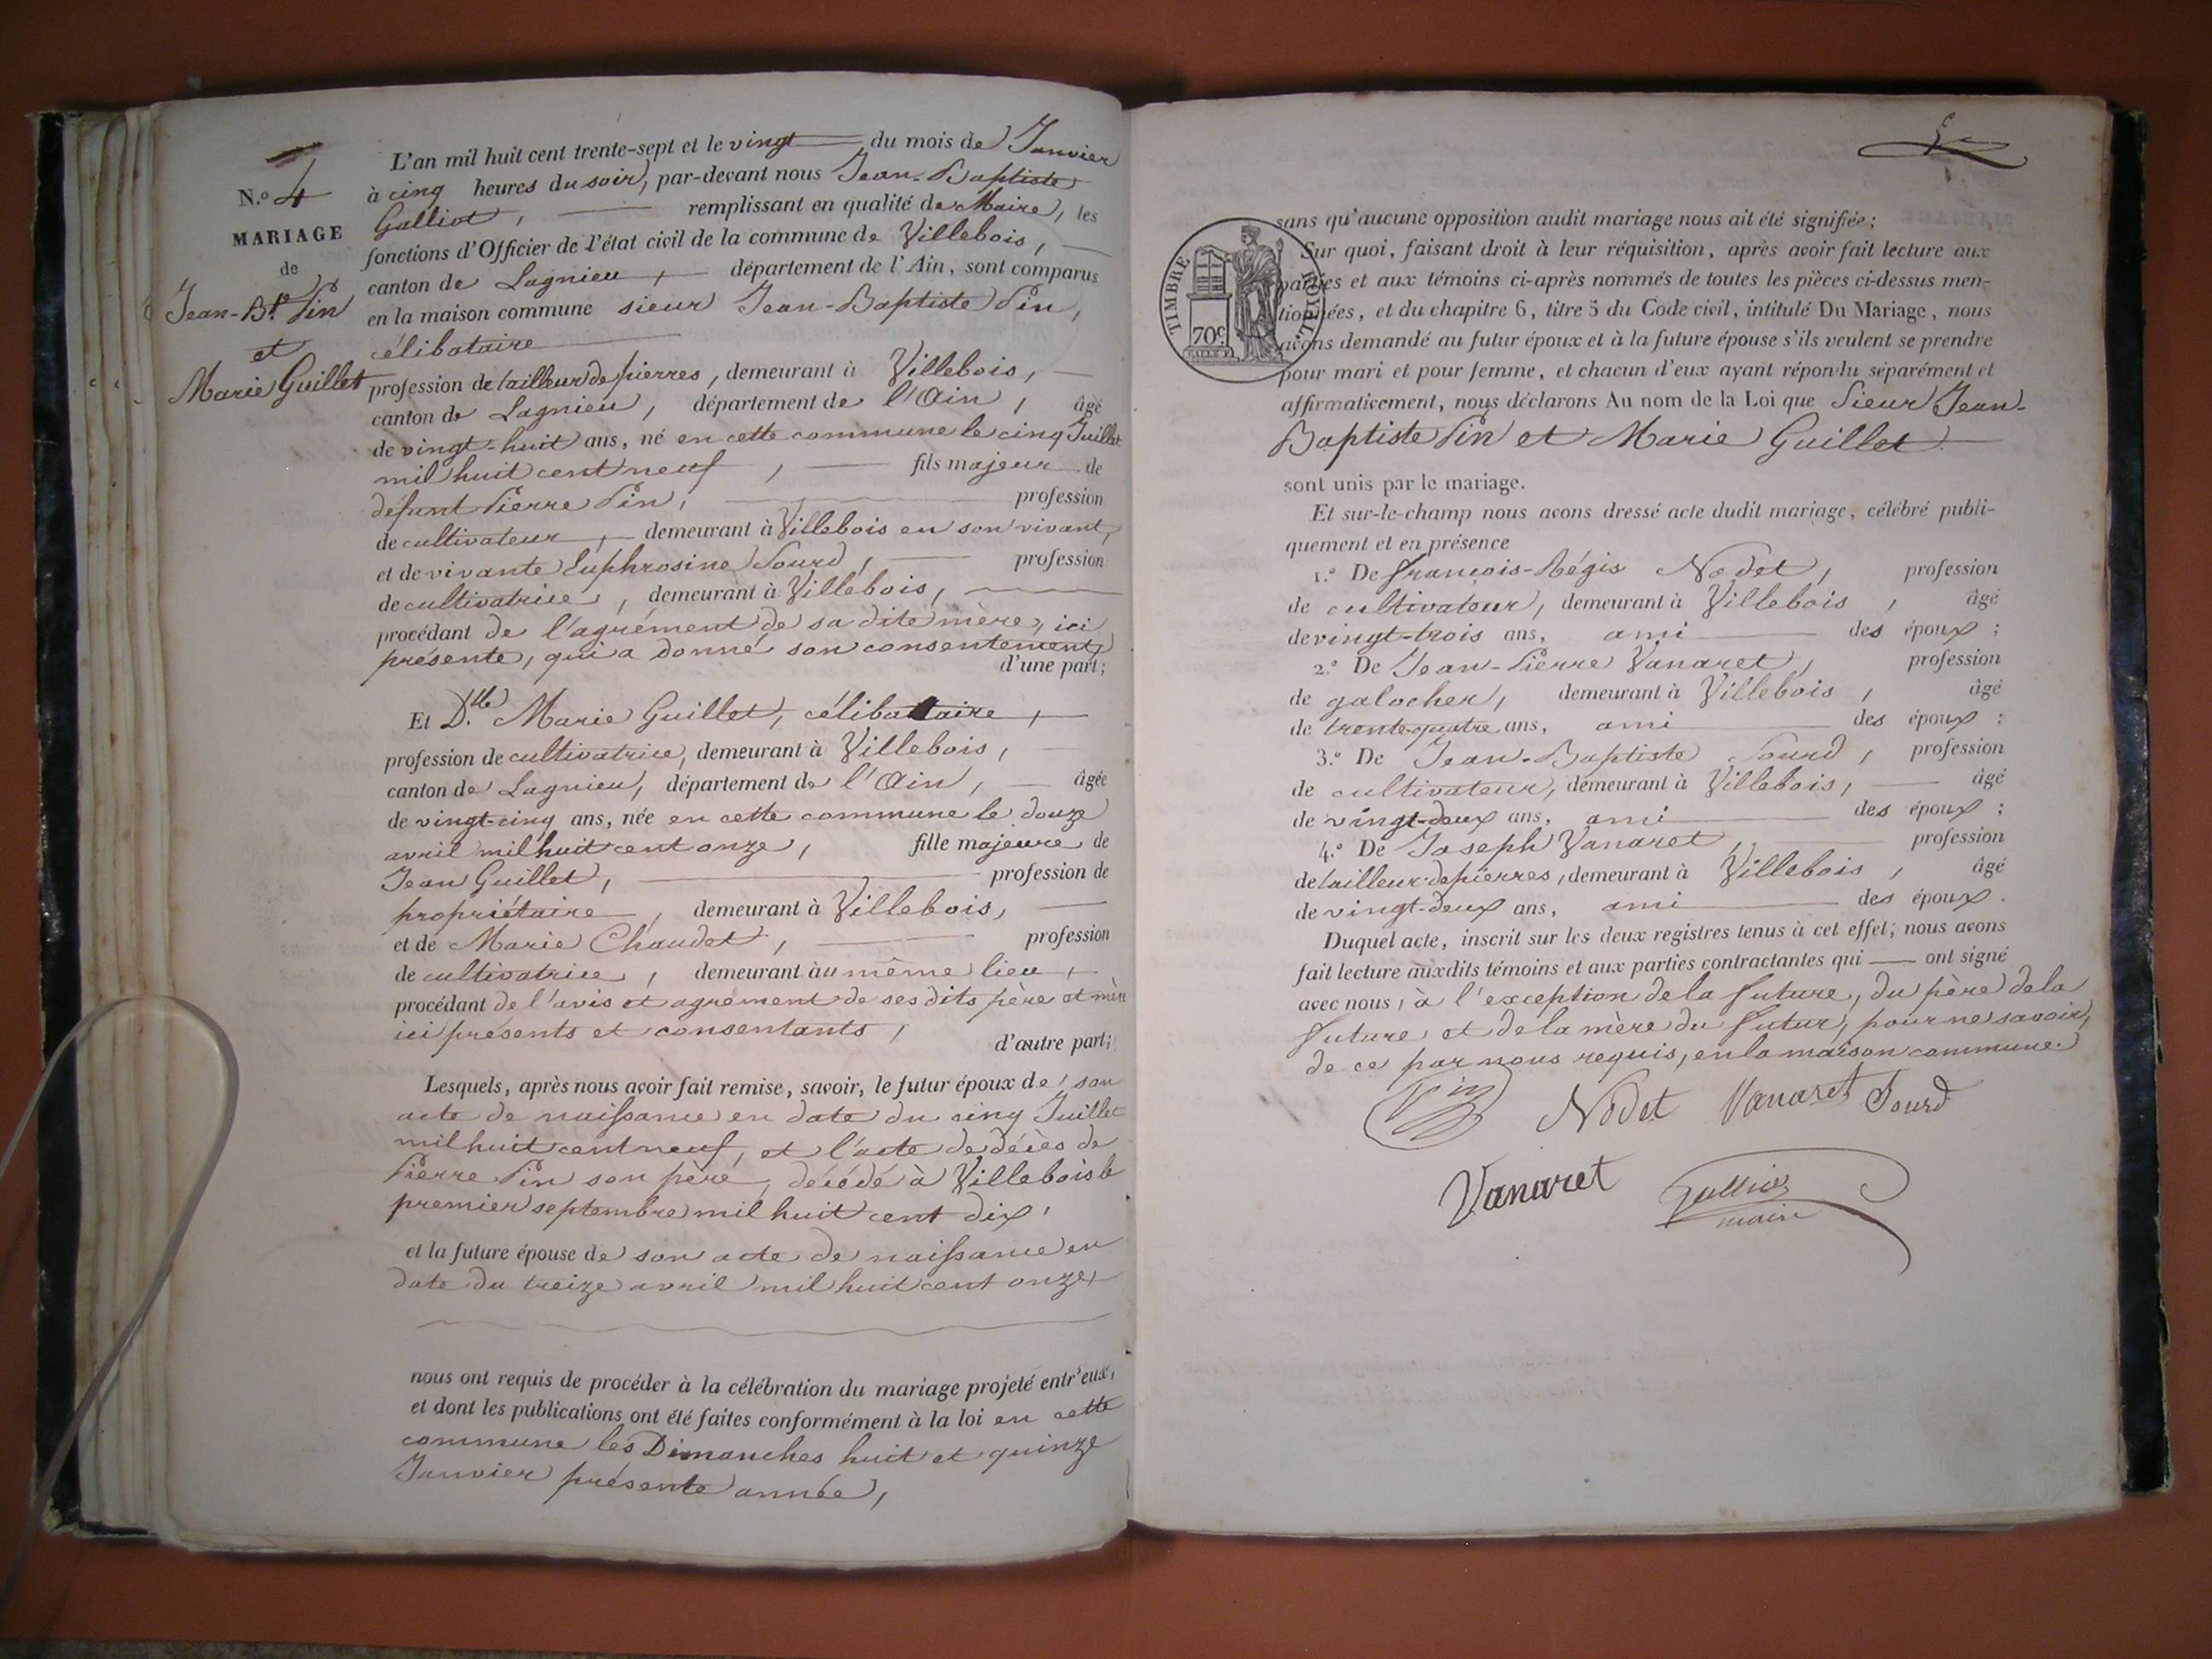 N.º 4
MARIAGE
de
Jean-Bte Pin
et
Marie Guillet
L'an mil huit cent trente-sept et le vingt du mois de Janvier
à cinq heures du soir, par-devant nous Jean-Baptiste
Galliot, remplissant en qualité de Maire, les
fonctions d'Officier de l'état civil de la commune de Villebois,
canton de Lagnieu, département de l'Ain, sont comparus
en la maison commune sieur Jean-Baptiste Pin,
célibataire
profession de tailleur de pierres, demeurant à Villebois,
canton de Lagnieu, département de l'Ain, âgé
de vingt-huit ans, né en cette commune le cinq Juillet
mil huit cent neuf, fils majeur de
défunt Pierre Pin, profession
de cultivateur, demeurant à Villebois en son vivant,
et de vivante Euphrosine Sourd, profession
de cultivatrice, demeurant à Villebois,
procédant de l'agrément de sa dite mère, ici
présente, qui a donné son consentement,
d'une part;
Et D.lle Marie Guillet, célibataire,
profession de cultivatrice, demeurant à Villebois,
canton de Lagnieu, département de l'Ain, âgée
de vingt-cinq ans, née en cette commune le douze
avril mil huit cent onze, fille majeure de
Jean Guillet, profession de
propriétaire, demeurant à Villebois,
et de Marie Chaudet, profession
de cultivatrice, demeurant au même lieu,
procédant de l'avis et agrément de ses dits père et mère
ici présents et consentants,
d'autre part;
Lesquels, après nous avoir fait remise, savoir, le futur époux de son
acte de naissance en date du cinq Juillet
mil huit cent neuf, et l'acte de décès de
Pierre Pin son père, décédé à Villebois le
premier septembre mil huit cent dix,
et la future épouse de son acte de naissance en
date du treize avril mil huit cent onze,
nous ont requis de procéder à la célébration du mariage projeté entr'eux,
et dont les publications ont été faites conformément à la loi en cette
commune les Dimanches huit et quinze
Janvier présente année,
TIMBRE ROYAL
70c.
sans qu'aucune opposition audit mariage nous ait été signifiée;
Sur quoi, faisant droit à leur réquisition, après avoir fait lecture aux
parties et aux témoins ci-après nommés de toutes les pièces ci-dessus men-
tionnées, et du chapitre 6, titre 5 du Code civil, intitulé Du Mariage, nous
avons demandé au futur époux et à la future épouse s'ils veulent se prendre
pour mari et pour femme, et chacun d'eux ayant répondu séparément et
affirmativement, nous déclarons Au nom de la Loi que Sieur Jean-
Baptiste Pin et Marie Guillet
sont unis par le mariage.
Et sur-le-champ nous avons dressé acte dudit mariage, célébré publi-
quement et en présence
1.º De françois-Régis Nodet, profession
de cultivateur, demeurant à Villebois, âgé
de vingt-trois ans, ami des époux;
2.º De Jean-Pierre Vanaret, profession
de galocher, demeurant à Villebois, âgé
de trente-quatre ans, ami des époux;
3.º De Jean-Baptiste Sourd, profession
de cultivateur, demeurant à Villebois, âgé
de vingt-deux ans, ami des époux;
4.º De Joseph Vanaret, profession
de tailleur de pierres, demeurant à Villebois, âgé
de vingt-deux ans, ami des époux.
Duquel acte, inscrit sur les deux registres tenus à cet effet, nous avons
fait lecture auxdits témoins et aux parties contractantes qui ont signé
avec nous, à l'exception de la future, du père de la
future et de la mère du futur, pour ne savoir,
de ce par nous requis, en la maison commune.
Pin Nodet Vanaret Sourd
Vanaret Galliot
maire